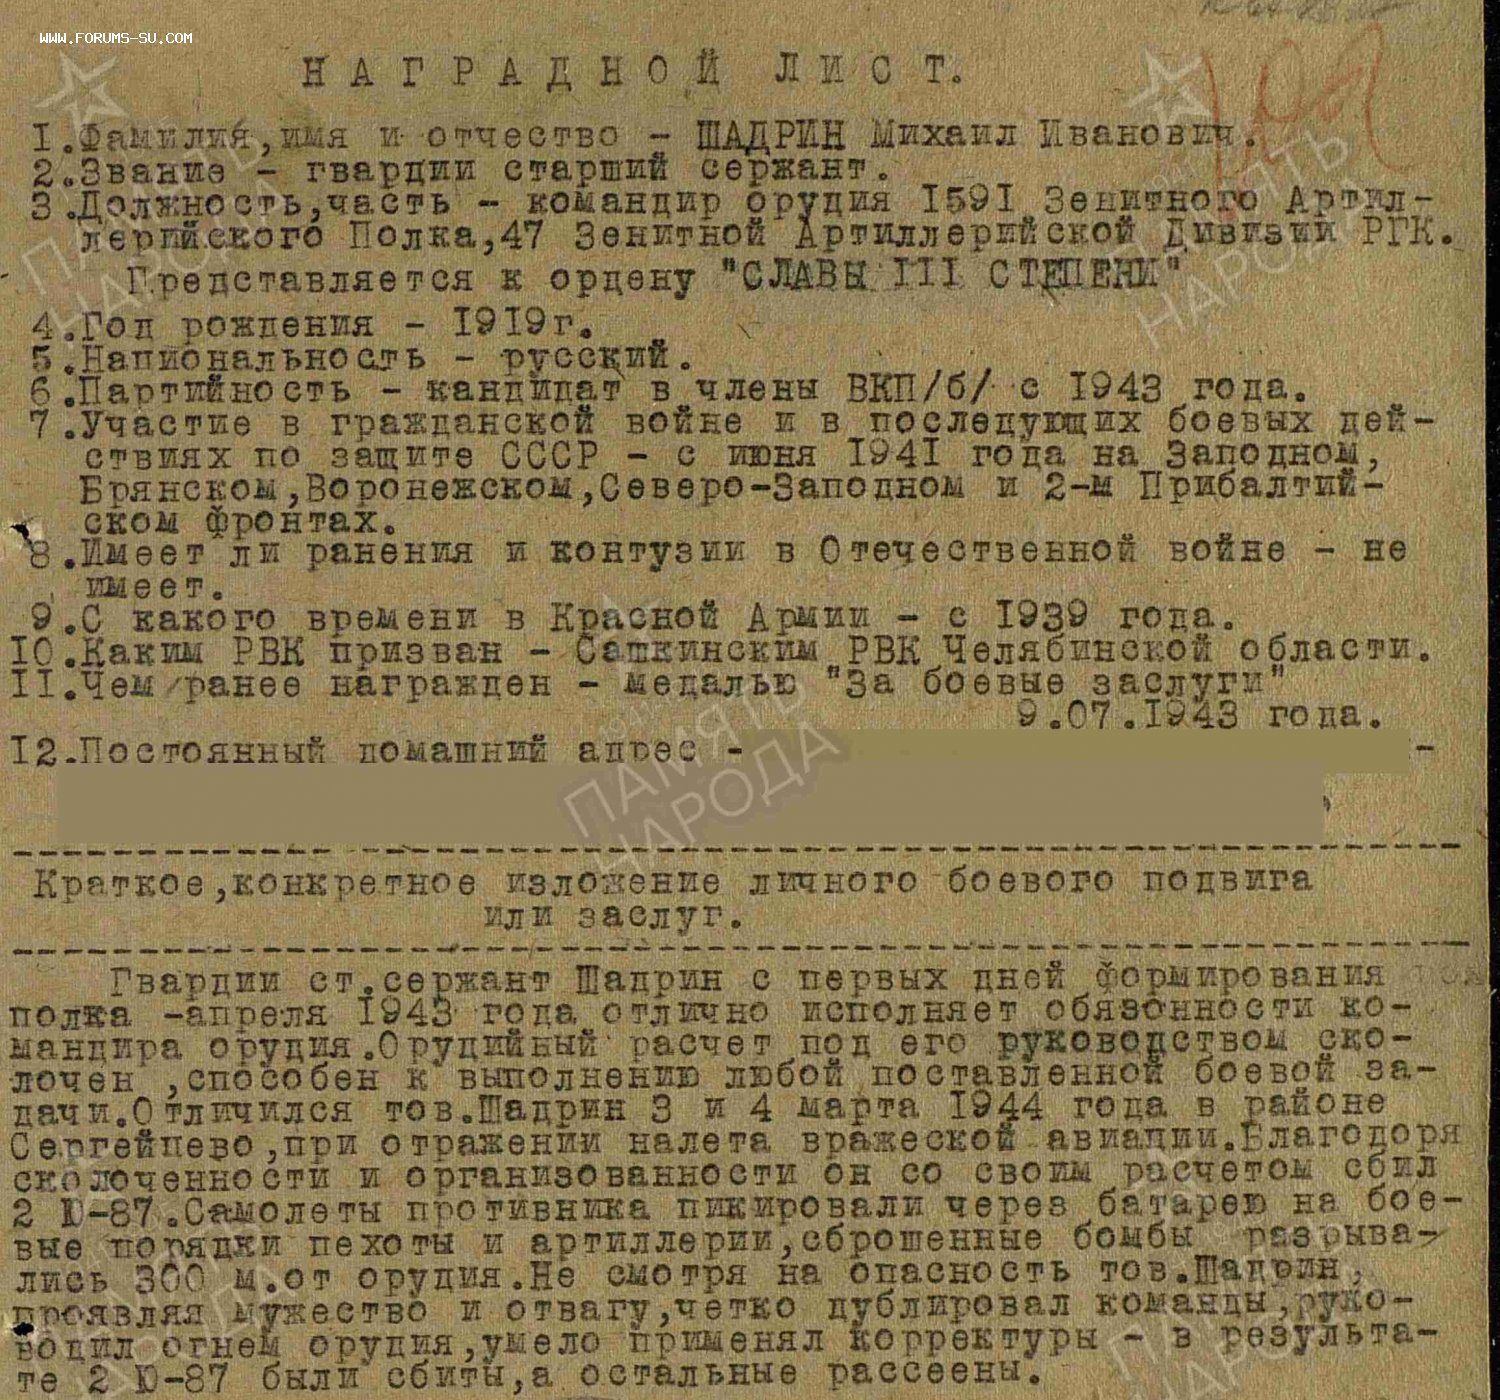 WWW.FORUMS-SU.COM
НАГРАДНОЙ ЛИСТ.
1.Фамилия,имя и отчество - ШАДРИН Михаил Иванович.
2.Звание - гвардии старший сержант.
3.Должность,часть - командир орудия 1591 Зенитного Артил-
лерийского Полка,47 Зенитной Артиллерийской Дивизии РГК.
Представляется к ордену "СЛАВЫ III СТЕПЕНИ"
4.Год рождения - 1919г.
5.Национальность - русский.
6.Партийность - кандидат в члены ВКП/б/ с 1943 года.
7.Участие в гражданской войне и в последующих боевых дей-
ствиях по защите СССР - с июня 1941 года на Заподном,
Брянском,Воронежском,Северо-Заподном и 2-м Прибалтий-
ском фронтах.
8.Имеет ли ранения и контузии в Отечественной войне - не
имеет.
9.С какого времени в Красной Армии - с 1939 года.
10.Каким РВК призван - Сашкинским РВК Челябинской области.
11.Чем ранее награжден - медалью "За боевые заслуги"
9.07.1943 года.
12.Постоянный домашний адрес - -
Краткое,конкретное изложение личного боевого подвига
или заслуг.
Гвардии ст.сержант Шадрин с первых дней формирования
полка -апреля 1943 года отлично исполняет обязонности ко-
мандира орудия.Орудийный расчет под его руководством ско-
лочен ,способен к выполнению любой поставленной боевой за-
дачи.Отличился тов.Шадрин 3 и 4 марта 1944 года в районе
Сергейцево,при отражении налета вражеской авиации.Благодоря
сколоченности и организованности он со своим расчетом сбил
2 Ю-87.Самолеты противника пикировали через батарею на бое-
вые порядки пехоты и артиллерии,сброшенные бомбы разрыва-
лись 300 м.от орудия.Не смотря на опасность тов.Шадрин,
проявляя мужество и отвагу,четко дублировал команды,руко-
водил огнем орудия,умело применял корректуры - в результа-
те 2 Ю-87 были сбиты,а остальные рассеены.
ПАМЯТЬ НАРОДА